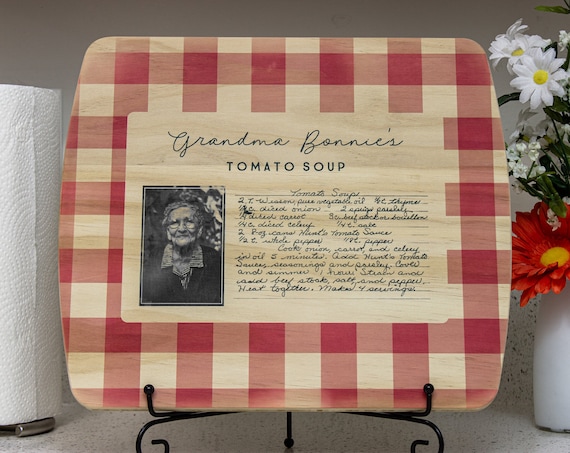 Grandma Bonnie's
TOMATO SOUP
Tomato Soup
2 T. Wesson pure vegetable oil ⅛ t. thyme
½ c. diced onion 2 sprigs parsley
diced carrot 3 c. beef stock or bouillon
¼ c. diced celery ¼ t. salt
2 8 oz. cans Hunt's Tomato Sauce
½ t. whole pepper pepper
Cook onion, carrot, and celery
in oil 5 minutes. Add Hunt's Tomato
Sauce, seasonings and parsley. Cover
and simmer 1 hour. Strain and
add beef stock, salt, and pepper.
Heat together. Makes 4 servings.